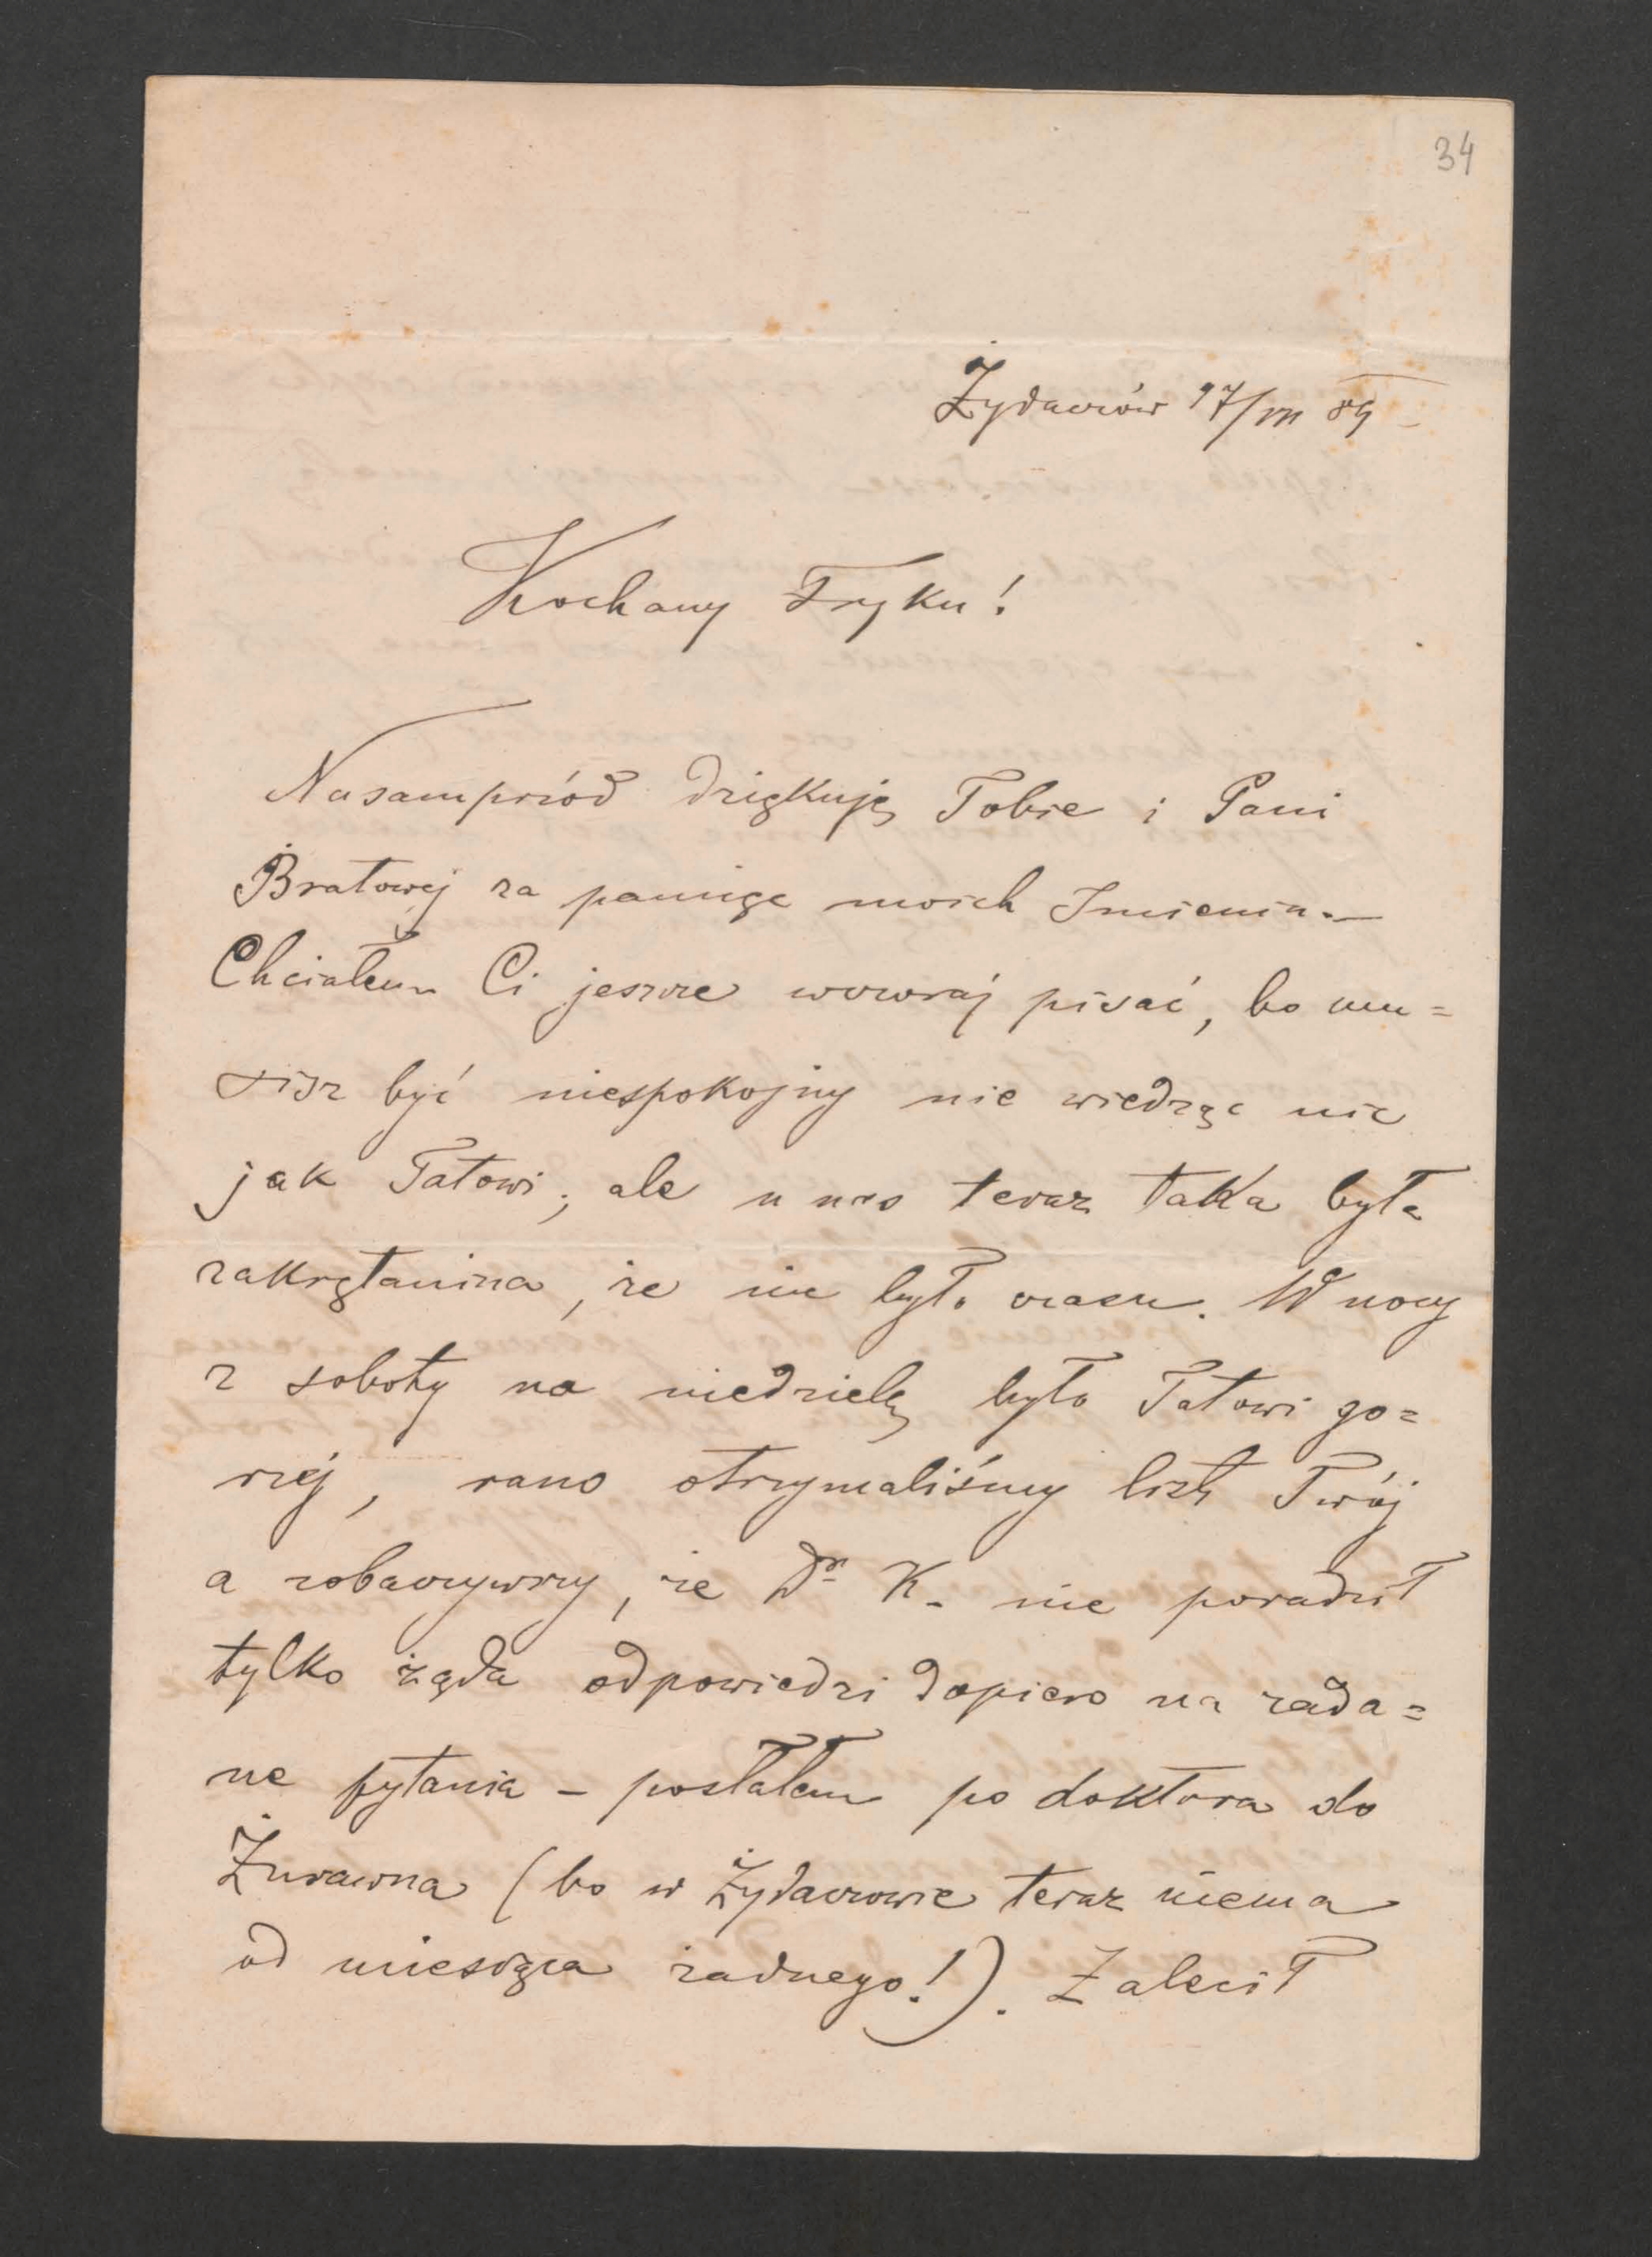 34
Żydaczów 17/VII 89
Kochany Fryku!
Nasamprzód dziękuję Tobie i Pani
Bratowej za pamięć moich Imienin. —
Chciałem Ci jeszcze wczoraj pisać, bo mu=
sisz być niespokojny nie wiedząc nic
jak Tatowi; ale u nas teraz taka była
zakrętanina, że nie było czasu. W nocy
z soboty na niedzielę było Tatowi go=
rzéj, rano otrzymaliśmy list Twój
a zobaczywszy, że Dr K. nie poradził
tylko żąda odpowiedzi dopiero na zada=
ne pytania – posłałem po doktora do
Żurawna (bo w Żydaczowie teraz niema
od miesiąca żadnego!). Zalecił